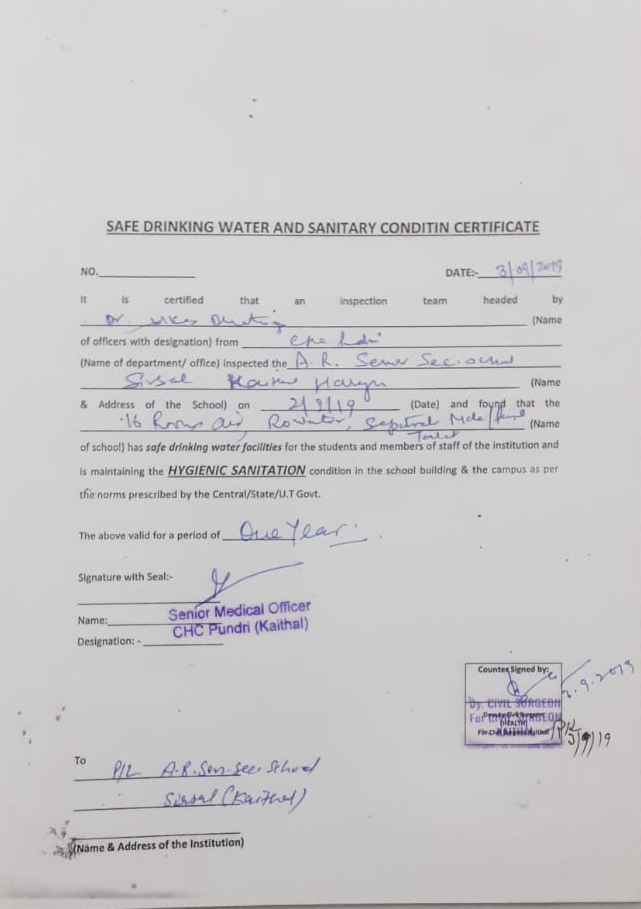 SAFE DRINKING WATER AND SANITARY CONDITIN CERTIFICATE
NO.
DATE:- 3/09/2019
It is certified that an inspection team headed by
Dr. (Name
of officers with designation) from
(Name of department/ office) inspected the A.R. Senior Sec. school
Sirsal (Name
& Address of the School) on 2/9/19 (Date) and found that the
16 Rooms (Name
Toilet
of school) has safe drinking water facilities for the students and members of staff of the institution and
is maintaining the HYGIENIC SANITATION condition in the school building & the campus as per
the norms prescribed by the Central/State/U.T Govt.
The above valid for a period of One Year.
Signature with Seal:-
Name: Senior Medical Officer
Designation: - CHC Pundri (Kaithal)
Counter Signed by:
3.9.2019
Dy. CIVIL SURGEON
For CIVIL SURGEON
3/9/19
To
P/L A.R. Sen. Sec. School
Sirsal (Kaithal)
(Name & Address of the Institution)